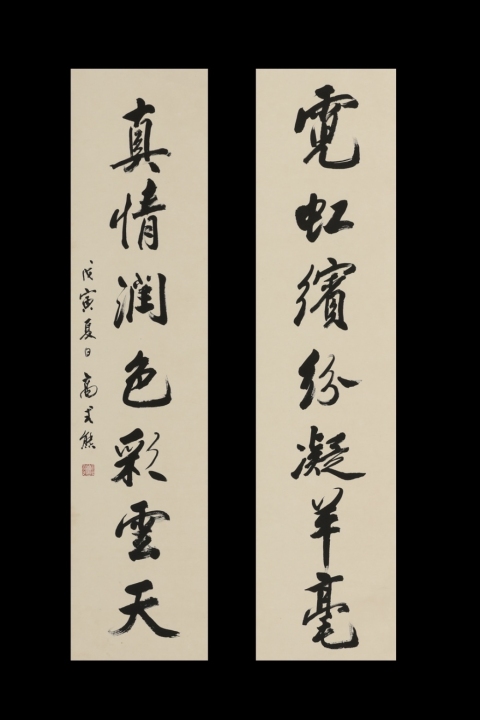 霓虹繽紛凝羊毫
真情潤色彩雲天
戊寅夏日 高式熊